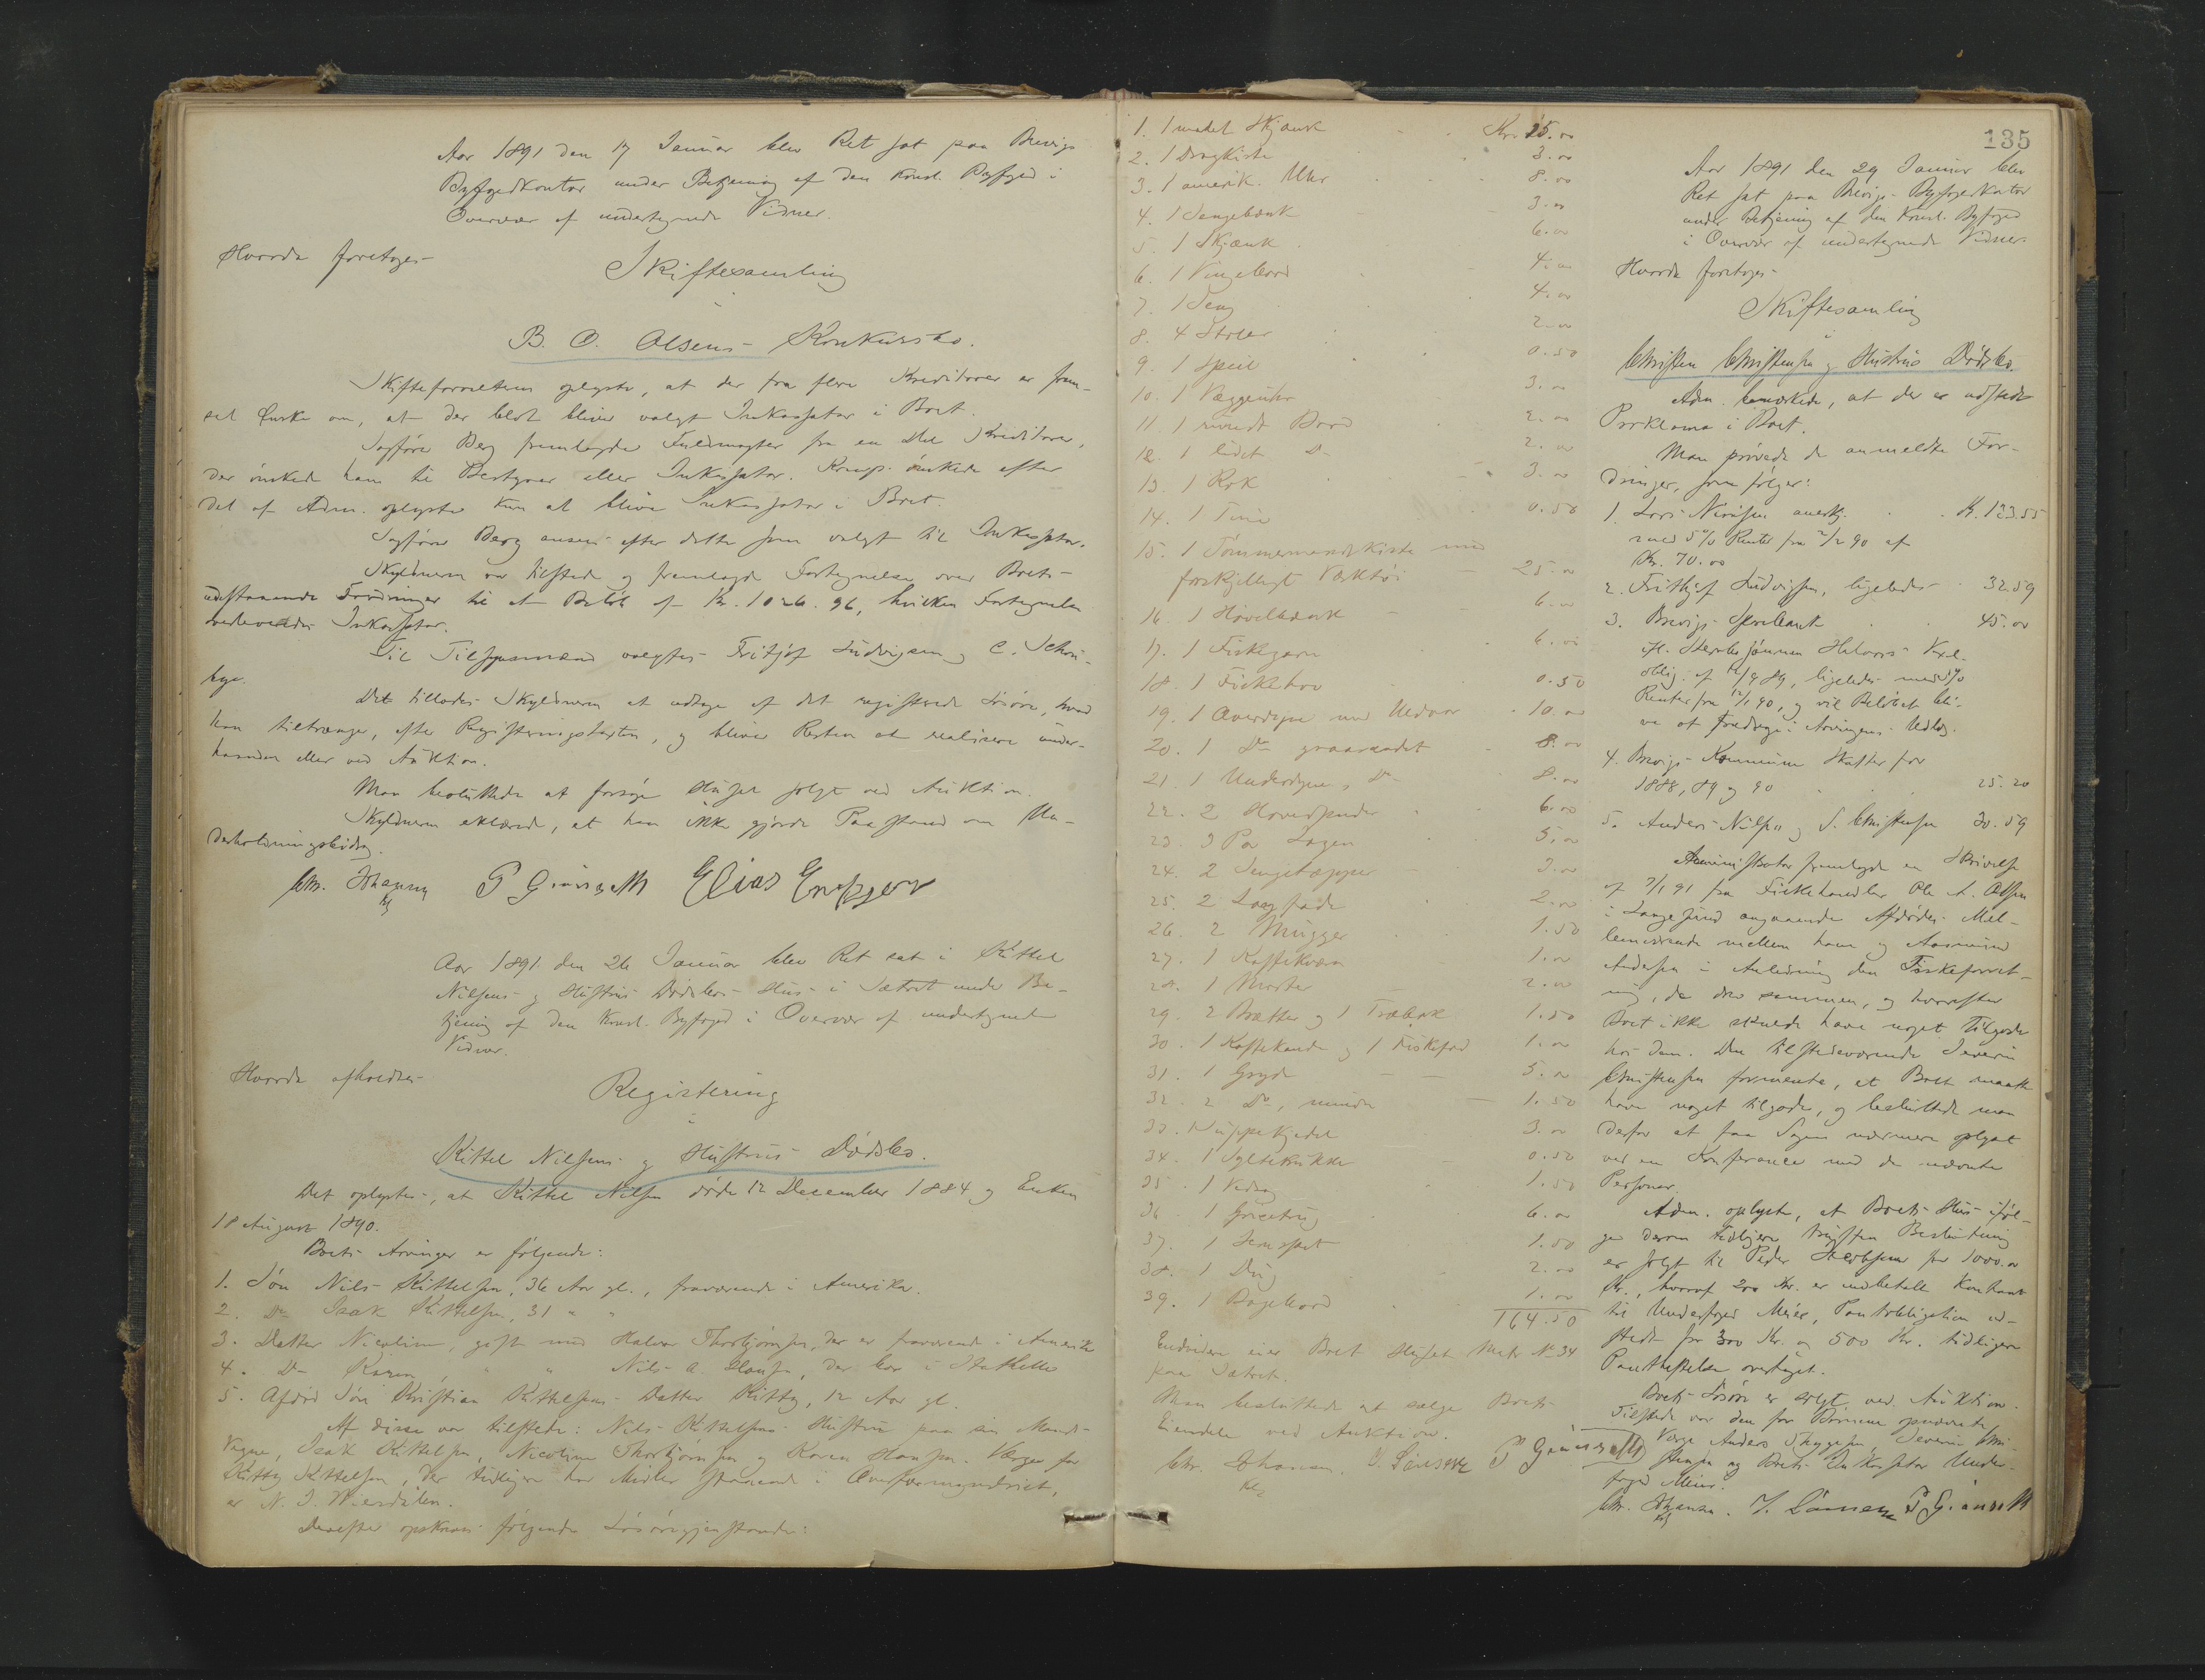 Aar 1891 den 17 Januar blev Ret sat paa Brevigs
Byfogedkontor under Betjening af den konst. Byfoged i
Overvær af undertegnede Vidner.
Hvorda foretoges
Skiftesamling
i
B. O. Olsens Konkursbo.
Skifteforvalteren oplyste, at der fra flere Kreditorer er frem-
sat Ønske om, at der blot bliver valgt Inkassator i Boet.
Sagfører Berg fremlagde Fuldmagter fra en Del Kreditorer,
der ønskede ham til Bestyrer eller Inkassator. Komp. ønskede efter
det af Adm. oplyste kun at blive Inkassator i Boet.
Sagfører Berg ansees efter dette som valgt til Inkassator.
Skyldneren var tilstede og fremlagde Fortegnelse over Boets
udestaaende Fordringer til et Beløb af Kr. 1026.96, hvilken Fortegnelse
overleveredes Inkassator.
Til Tilsynsmænd valgtes Fritjof Ludvigsen og C. Schou-
bye.
Det tillodes Skyldneren at udtage af det registrerede Løsøre, hvad
han tiltrænger, efter Registreringstaxten, og bliver Resten at realisere under-
haanden eller ved Auktion.
Man besluttede at forsøge Huset solgt ved Auktion.
Skyldneren erklærede, at han ikke gjorde Paastand om Un-
derholdningsbidrag.
Chr. Johansen P Grönseth Elias
Aar 1891 den 26 Januar blev Ret sat i Kittel
Nilsens og Hustrus Dødsbos Hus i Sætret under Be-
tjening af den konst. Byfoged i Overvær af undertegnede
Vidner.
Hvorda afholdtes
Registering
i
Kittel Nilsens og Hustrus Dødsbo.
Det oplystes, at Kittel Nilsen døde 12 December 1884 og Enken
18 August 1890.
Boets Arvinger er følgende:
1. Søn Nils Kittelsen, 36 Aar gl., fraværende i Amerika.
2. Do Isak Kittelsen, 31 " "
3. Datter Nicoline, gift med Halvor Thorbjørnsen, der er fraværende i Amerika
4. Do Karen, " " Nils A. Hansen, der bor i Stathelle
5. Afdød Søn Kristian Kittelsens Datter Kitty, 12 Aar gl.
Af disse var tilstede: Nils Kittelsens Hustru paa sin Mands
Vegne, Isak Kittelsen, Nicoline Thorbjørnsen og Karen Hansen. Værge for
Kitty Kittelsen, der tidligere har Midler staaende i Overformynderiet,
er N. J. Wierdalen.
Derefter opskreves følgende Løsøregjenstande:
1. 1 malet Skjænk Kr. 25.00
2. 1 Dragkiste 3.00
3. 1 amerik. Uhr 8.00
4. 1 Sengebænk 3.00
5. 1 Skjænk 6.00
6. 1 Vingebord 4.00
7. 1 Seng 4.00
8. 4 Stoler 2.00
9. 1 Speil 0.50
10. 1 Væggeuhr 3.00
11. 1 rundt Bord 2.00
12. 1 lidet Do 2.00
13. 1 Rok 3.00
14. 1 Tine 0.50
15. 1 Tømmermandskiste med
forskjelligt Værktøi 25.00
16. 1 Høvelbænk 6.00
17. 1 Fiskegarn 6.00
18. 1 Fiskehov 0.50
19. 1 Overdyne med Udvar 10.00
20. 1 Do graarandet 8.00
21. 1 Underdyne, Do 8.00
22. 2 Hovedpuder 6.00
23. 3 Par Lagen 5.00
24. 2 Sengetæpper 3.00
25. 2 2.00
26. 2 Mugger 1.50
27. 1 Kaffekværn 1.00
28. 1 Morter 2.00
29. 2 Brætter og 1 Træbak 1.50
30. 1 Kaffekande og 1 Fiskefad 1.00
31. 1 Gryde 5.00
32. 2 Do, mindre 1.50
33. Suppekjedel 3.00
34. 1 Syltekrukke 0.50
35. 1 1.50
36. 1 6.00
37. 1 1.50
38. 1 2.00
39. 1 Bagebord 1.00
164.50
Endvidere eier Boet Huset Matr No 34
paa Sætret.
Man besluttede at sælge Boets
Eiendele ved Auktion.
Chr. Johansen. J. Larsen P Grönseth
135
Aar 1891 den 29 Januar blev
Ret sat paa Brevigs Byfogedkontor
under Betjening af den konst. Byfoged
i Overvær af undertegnede Vidner.
Hvorda foretoges
Skiftesamling
i
Christen Christensen og Hustrus Dødsbo.
Adm. bemærkede, at der er udstedt
Proklama i Boet.
Man prøvede de anmeldte For-
dringer, som følger:
1. Lars Nirisen anerkj. Kr. 123.55
med 5% Renter fra 2/12 90 af
Kr. 70.00
2. Frithjof Ludvigsen, ligeledes 32.59
3. Brevigs Sparebank 45.00
ifl. Vexel-
oblig. af 12/9 89, ligeledes med %
Renter fra 12/1 90, og vil Beløbet bli-
ve at fradrage i Arvingens Udlæg.
4. Brevigs Kommune Skatter for
1888, 89 og 90 25.20
5. Anders Nilsen og S. Christensen 30.59
Administrator fremlagde en Skrivelse
af 7/1 91 fra Fiskehandler Ole A. Olsen
i Langesund angaaende Afdødes Mel-
lemværende mellem ham og Aasmund
Andersen i Anledning den Fiskeforret-
ning, de drev sammen, og hvorefter
Boet ikke skulde have noget Tilgode
hos dem. Den tilstedeværende Severin
Christensen formente, at Boet maatte
have noget tilgode, og besluttede man
derfor at faa Sagen nærmere oplyst
ved en Konferance med de nævnte
Personer.
Adm. oplyste, at Boets Hus iføl-
ge derom tidligere truffen Beslutning
er solgt til Peder Jacobsen for 1000.00
Kr., hvoraf 200 Kr. er indbetalt kontant
til Underfoged Meier, Pantobligation ud-
stedt for 300 Kr. og 500 Kr. tidligere
Pantheftelse overtaget.
Boets Løsøre er solgt ved Auktion.
Tilstede var den for Børnene opnævnte
Værge Anders Thygesen, Severin Chri-
stensen og Boets Inkassator Under-
foged Meier.
Chr. Johansen. J. Larsen P Grönseth